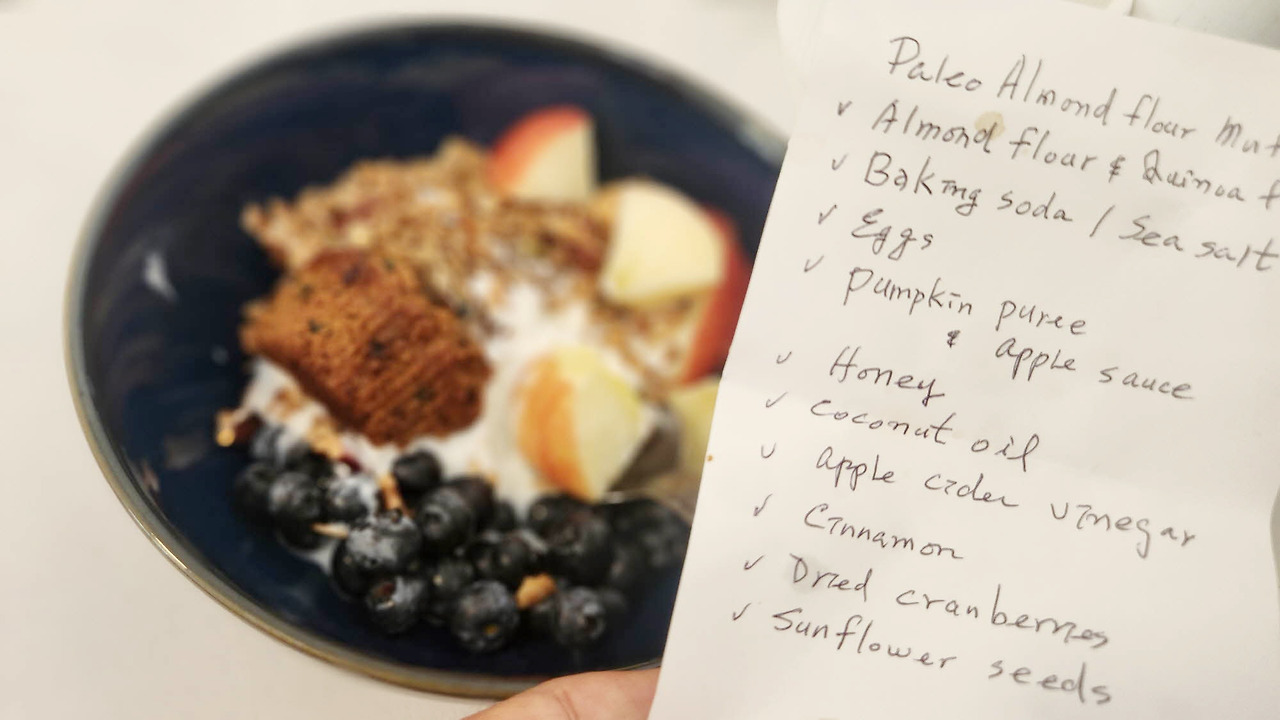 Paleo Almond flour Mut
✓ Almond flour & Quinoa f
✓ Baking soda / Sea salt
✓ Eggs
✓ Pumpkin puree
& apple sauce
✓ Honey
✓ Coconut oil
✓ apple cider vinegar
✓ Cinnamon
✓ Dried cranberries
✓ Sunflower seeds